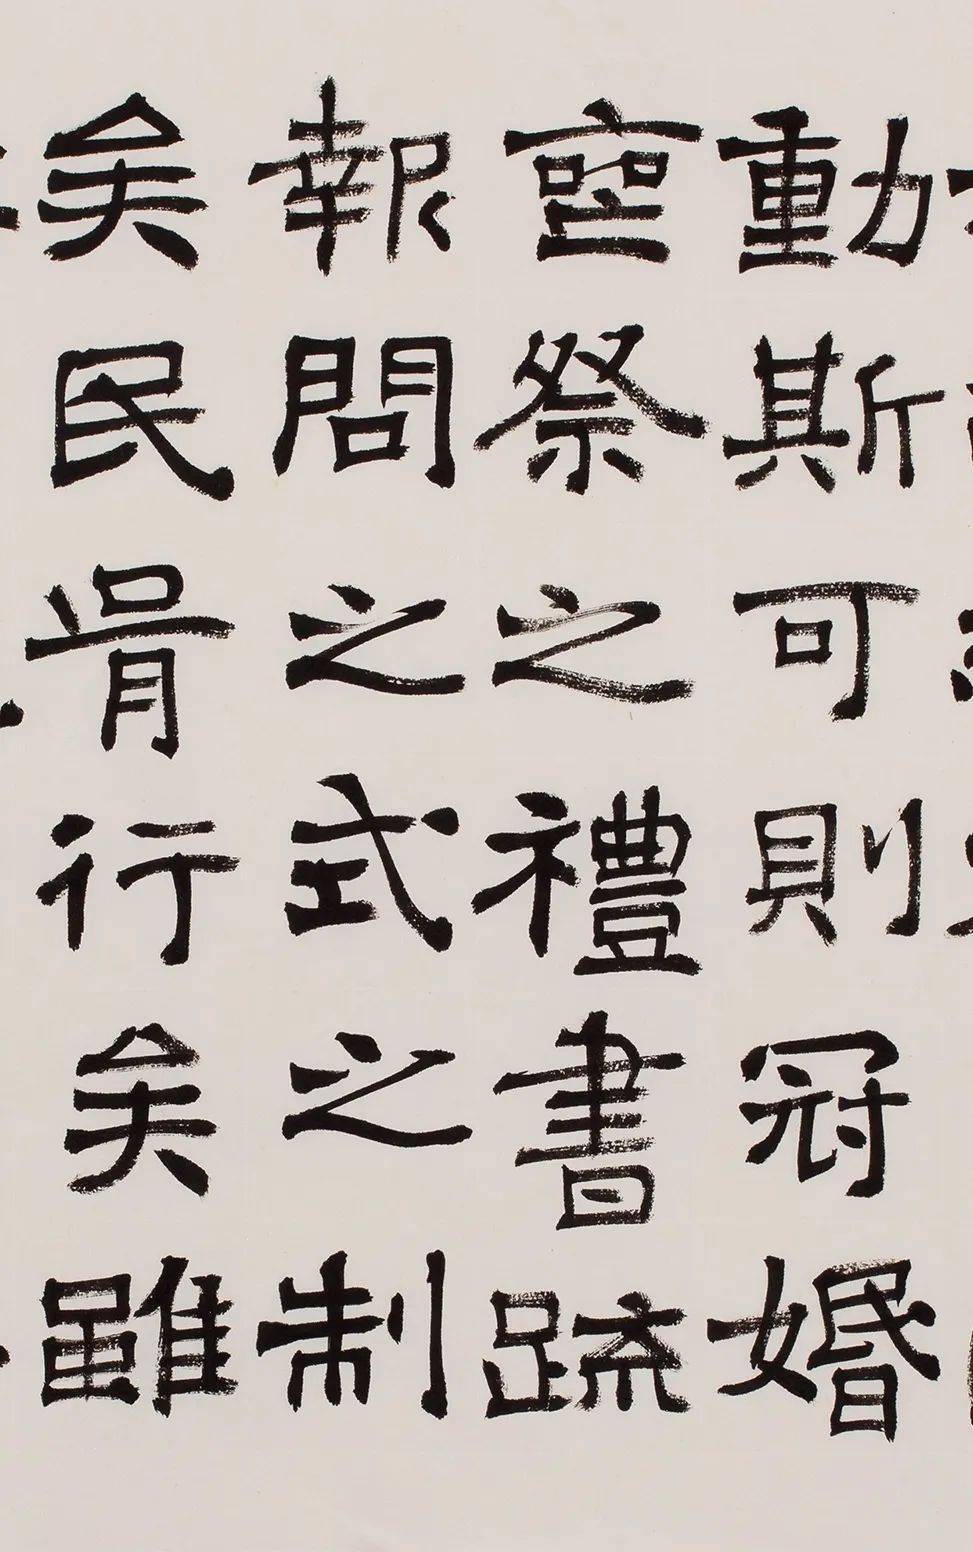 動斯可則冠婚
喪祭之禮書疏
報問之式之制
矣民肯行矣雖